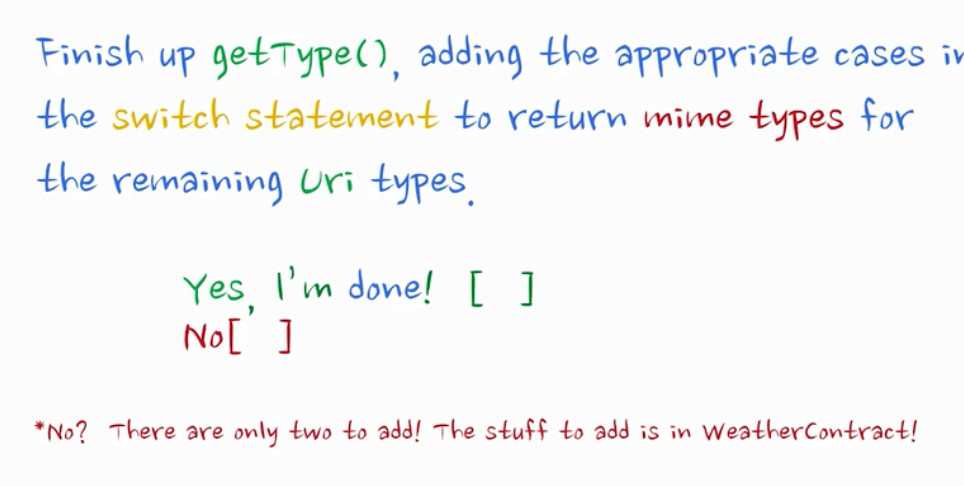 Finish up getType(), adding the appropriate cases in
the switch statement to return mime types for
the remaining Uri types.
Yes, I'm done! [ ]
No[ ]
*No? There are only two to add! The stuff to add is in WeatherContract!